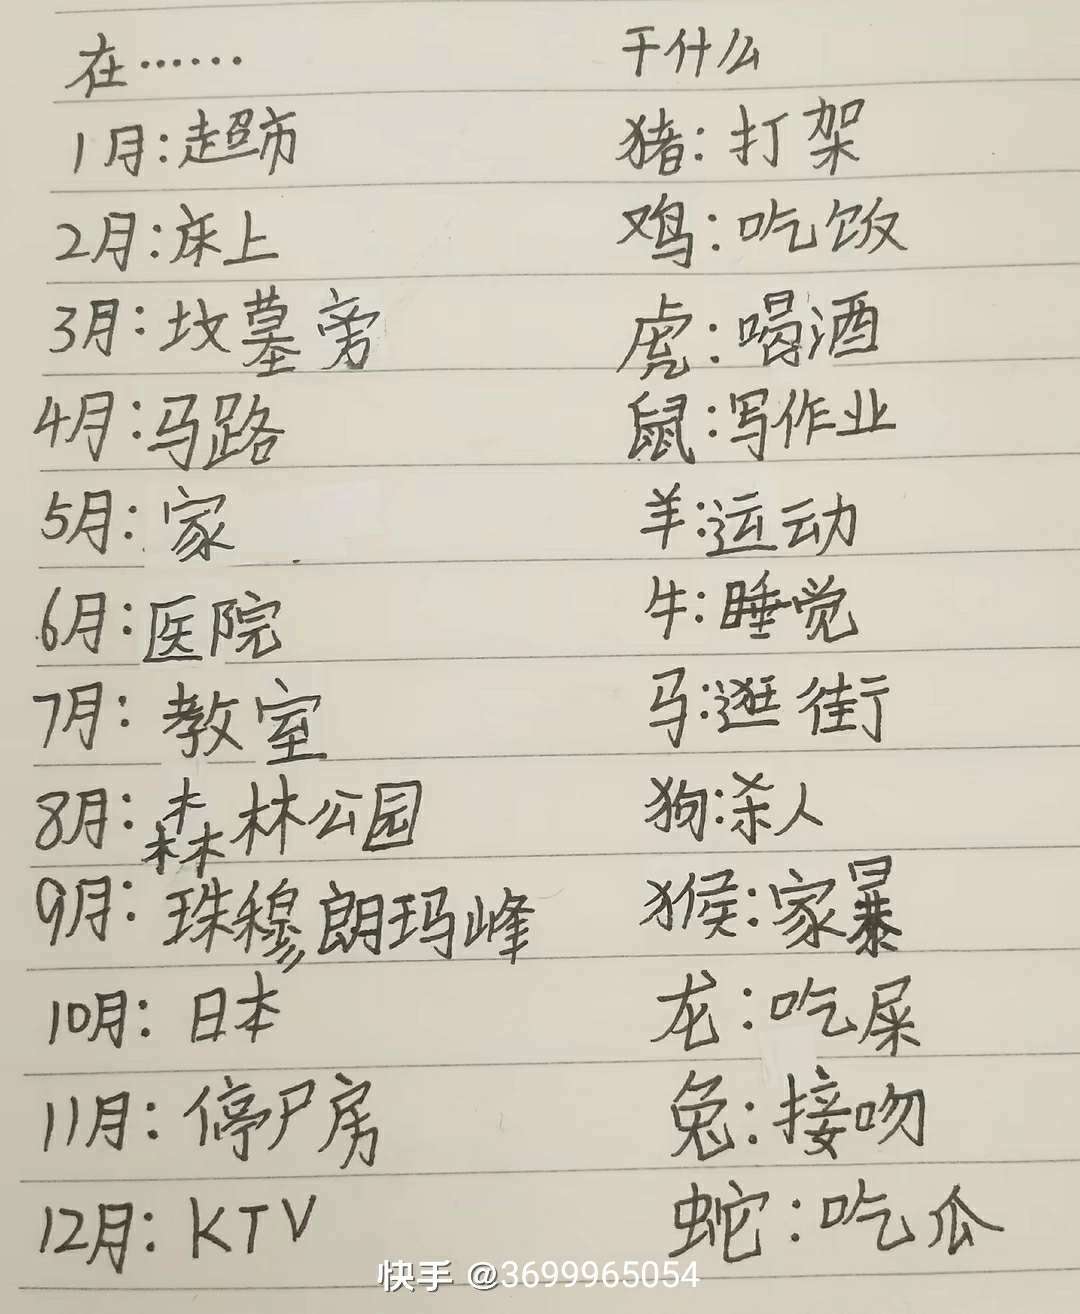 在…… 干什么
1月：超市 猪：打架
2月：床上 鸡：吃饭
3月：坟墓旁 虎：喝酒
4月：马路 鼠：写作业
5月：家 羊：运动
6月：医院 牛：睡觉
7月：教室 马：逛街
8月：森林公园 狗：杀人
9月：珠穆朗玛峰 猴：家暴
10月：日本 龙：吃屎
11月：停尸房 兔：接吻
12月：KTV 蛇：吃瓜
快手 @3699965054